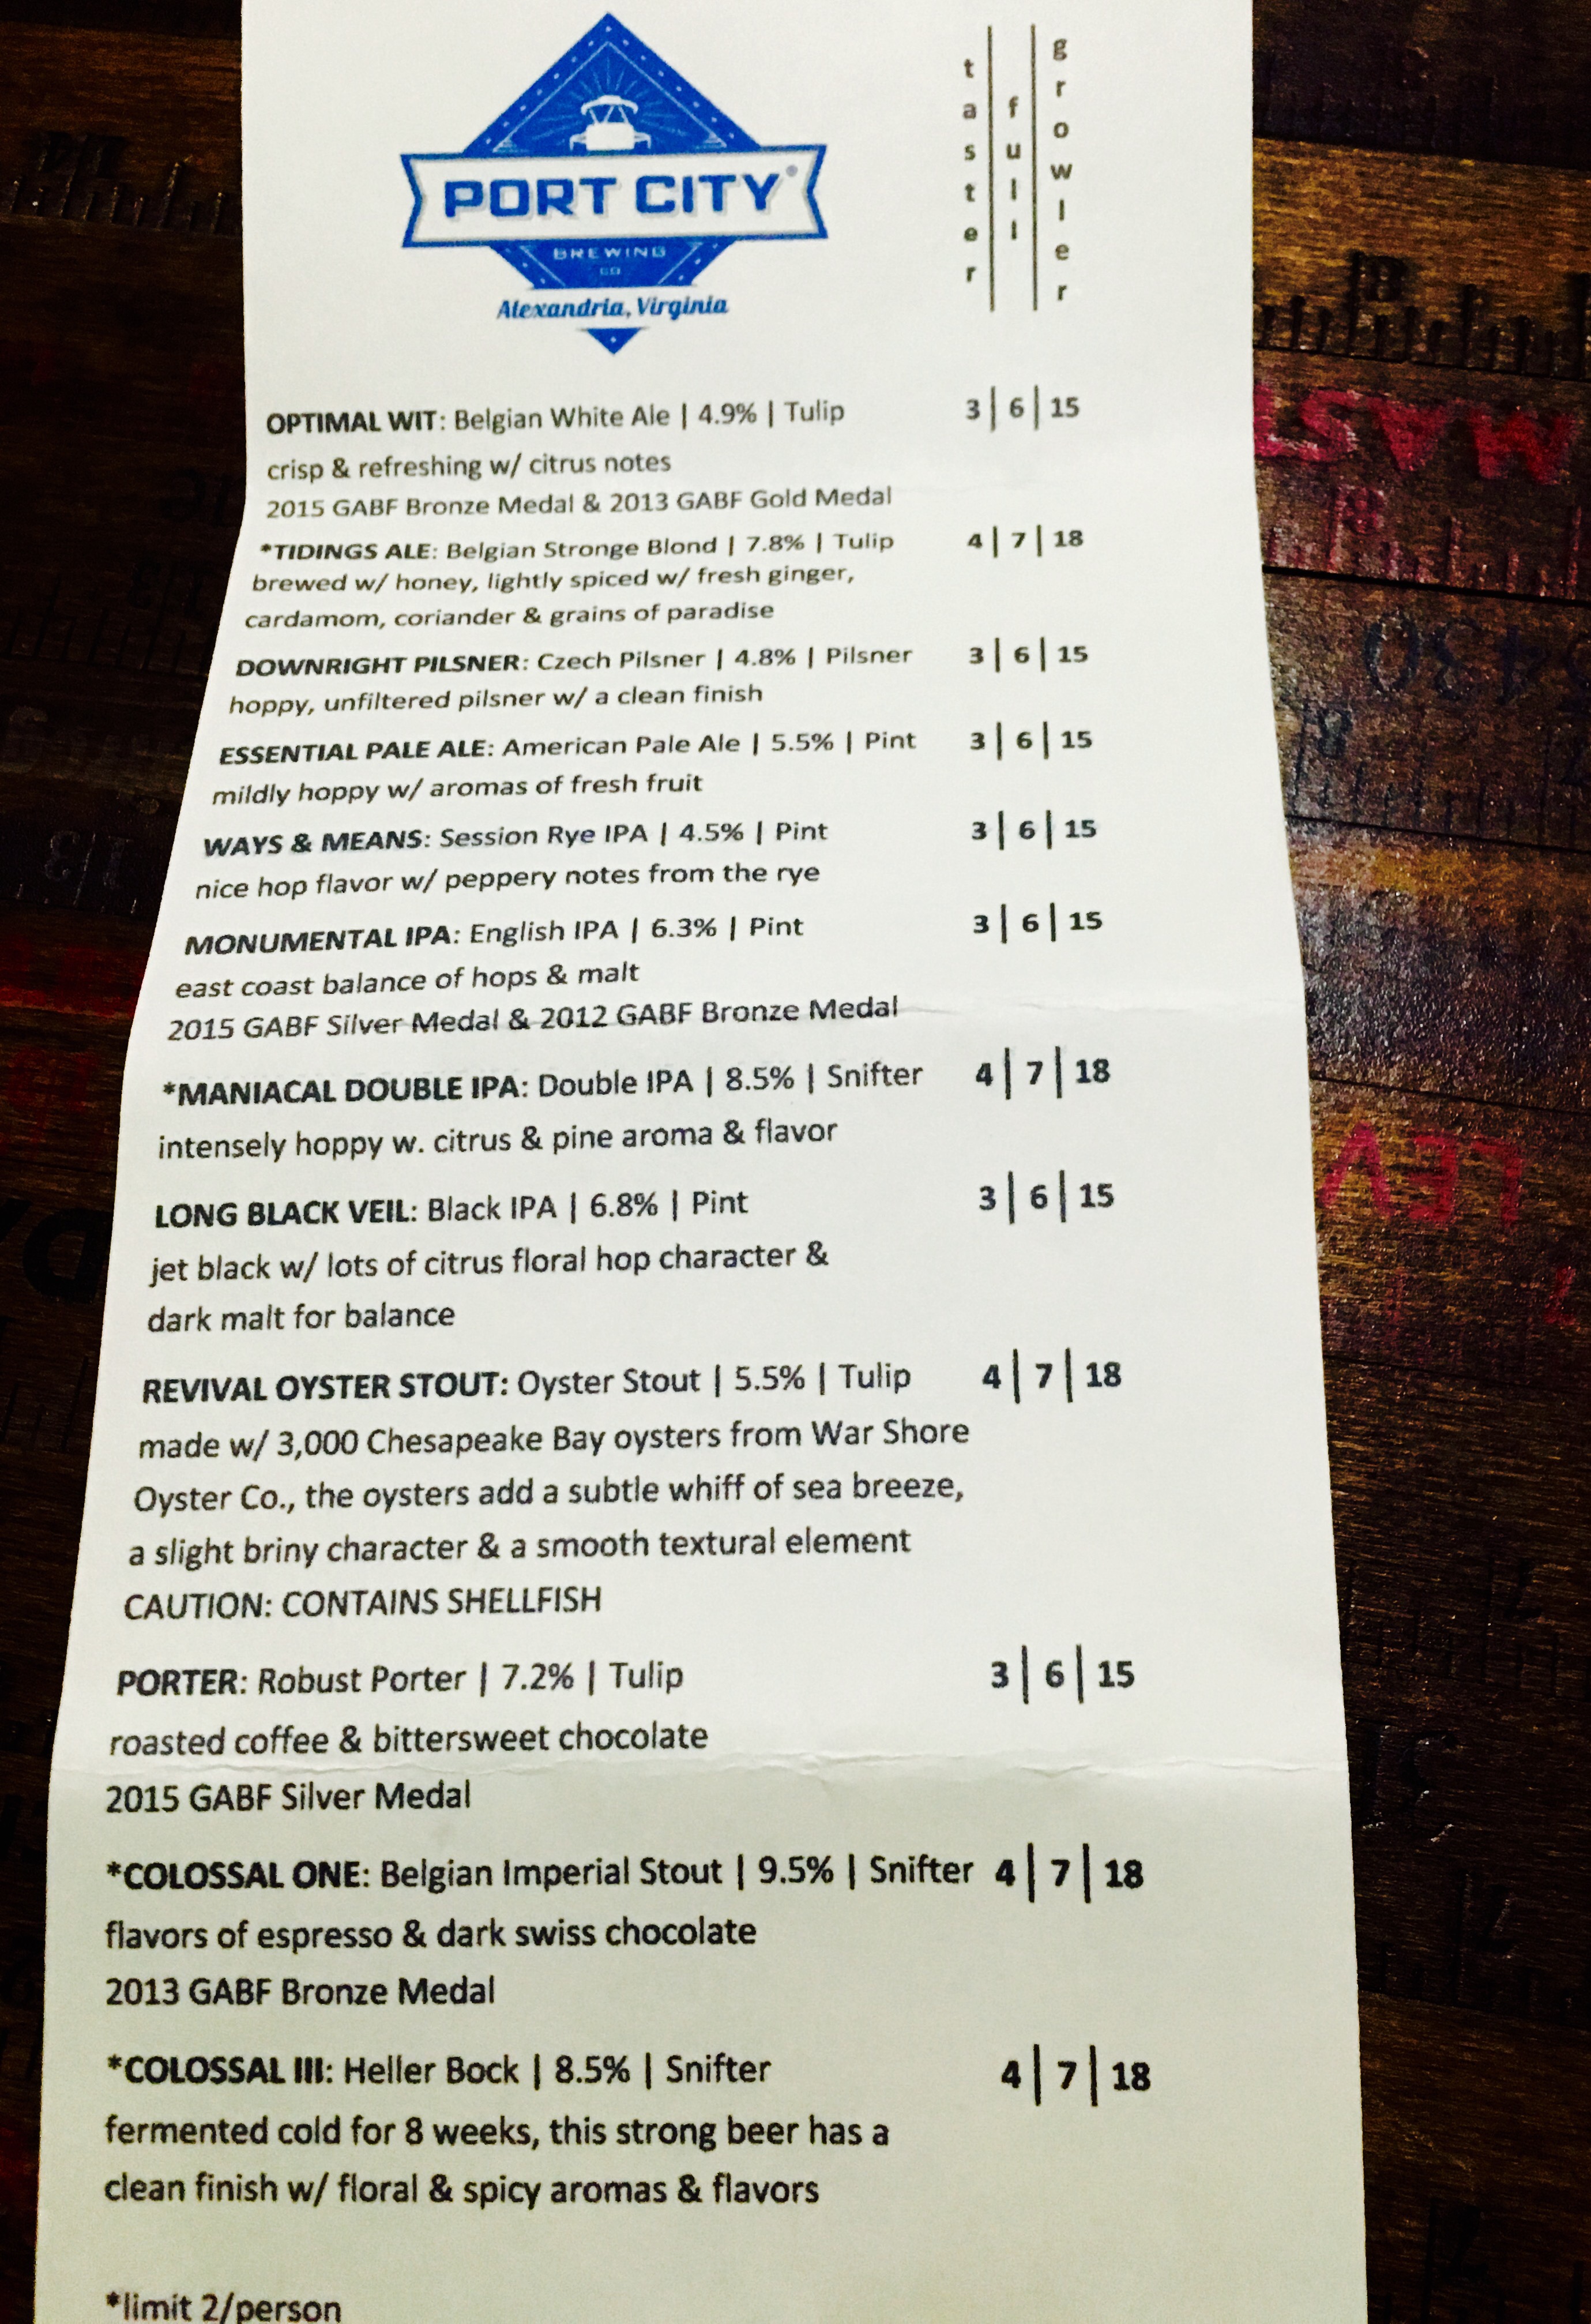 PORT CITY®
BREWING
CO
Alexandria, Virginia
taster | full | growler
OPTIMAL WIT: Belgian White Ale | 4.9% | Tulip 3 | 6 | 15
crisp & refreshing w/ citrus notes
2015 GABF Bronze Medal & 2013 GABF Gold Medal
*TIDINGS ALE: Belgian Stronge Blond | 7.8% | Tulip 4 | 7 | 18
brewed w/ honey, lightly spiced w/ fresh ginger,
cardamom, coriander & grains of paradise
DOWNRIGHT PILSNER: Czech Pilsner | 4.8% | Pilsner 3 | 6 | 15
hoppy, unfiltered pilsner w/ a clean finish
ESSENTIAL PALE ALE: American Pale Ale | 5.5% | Pint 3 | 6 | 15
mildly hoppy w/ aromas of fresh fruit
WAYS & MEANS: Session Rye IPA | 4.5% | Pint 3 | 6 | 15
nice hop flavor w/ peppery notes from the rye
MONUMENTAL IPA: English IPA | 6.3% | Pint 3 | 6 | 15
east coast balance of hops & malt
2015 GABF Silver Medal & 2012 GABF Bronze Medal
*MANIACAL DOUBLE IPA: Double IPA | 8.5% | Snifter 4 | 7 | 18
intensely hoppy w. citrus & pine aroma & flavor
LONG BLACK VEIL: Black IPA | 6.8% | Pint 3 | 6 | 15
jet black w/ lots of citrus floral hop character &
dark malt for balance
REVIVAL OYSTER STOUT: Oyster Stout | 5.5% | Tulip 4 | 7 | 18
made w/ 3,000 Chesapeake Bay oysters from War Shore
Oyster Co., the oysters add a subtle whiff of sea breeze,
a slight briny character & a smooth textural element
CAUTION: CONTAINS SHELLFISH
PORTER: Robust Porter | 7.2% | Tulip 3 | 6 | 15
roasted coffee & bittersweet chocolate
2015 GABF Silver Medal
*COLOSSAL ONE: Belgian Imperial Stout | 9.5% | Snifter 4 | 7 | 18
flavors of espresso & dark swiss chocolate
2013 GABF Bronze Medal
*COLOSSAL III: Heller Bock | 8.5% | Snifter 4 | 7 | 18
fermented cold for 8 weeks, this strong beer has a
clean finish w/ floral & spicy aromas & flavors
*limit 2/person